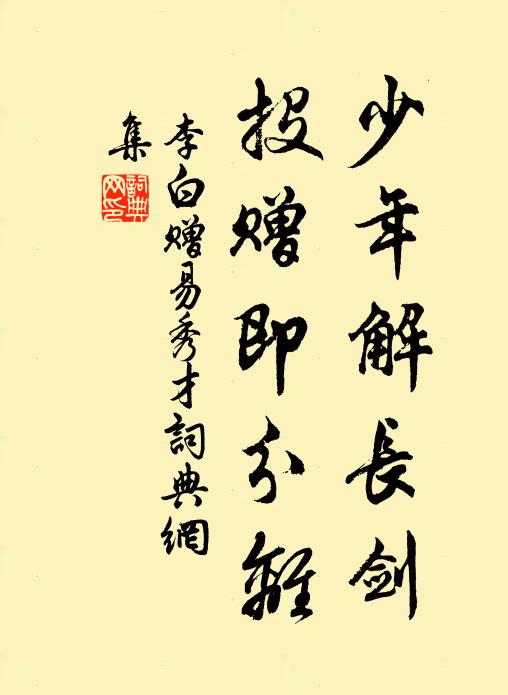 少年解長劍
投贈即分離
李白贈易秀才詞典網
集
詞典
网印